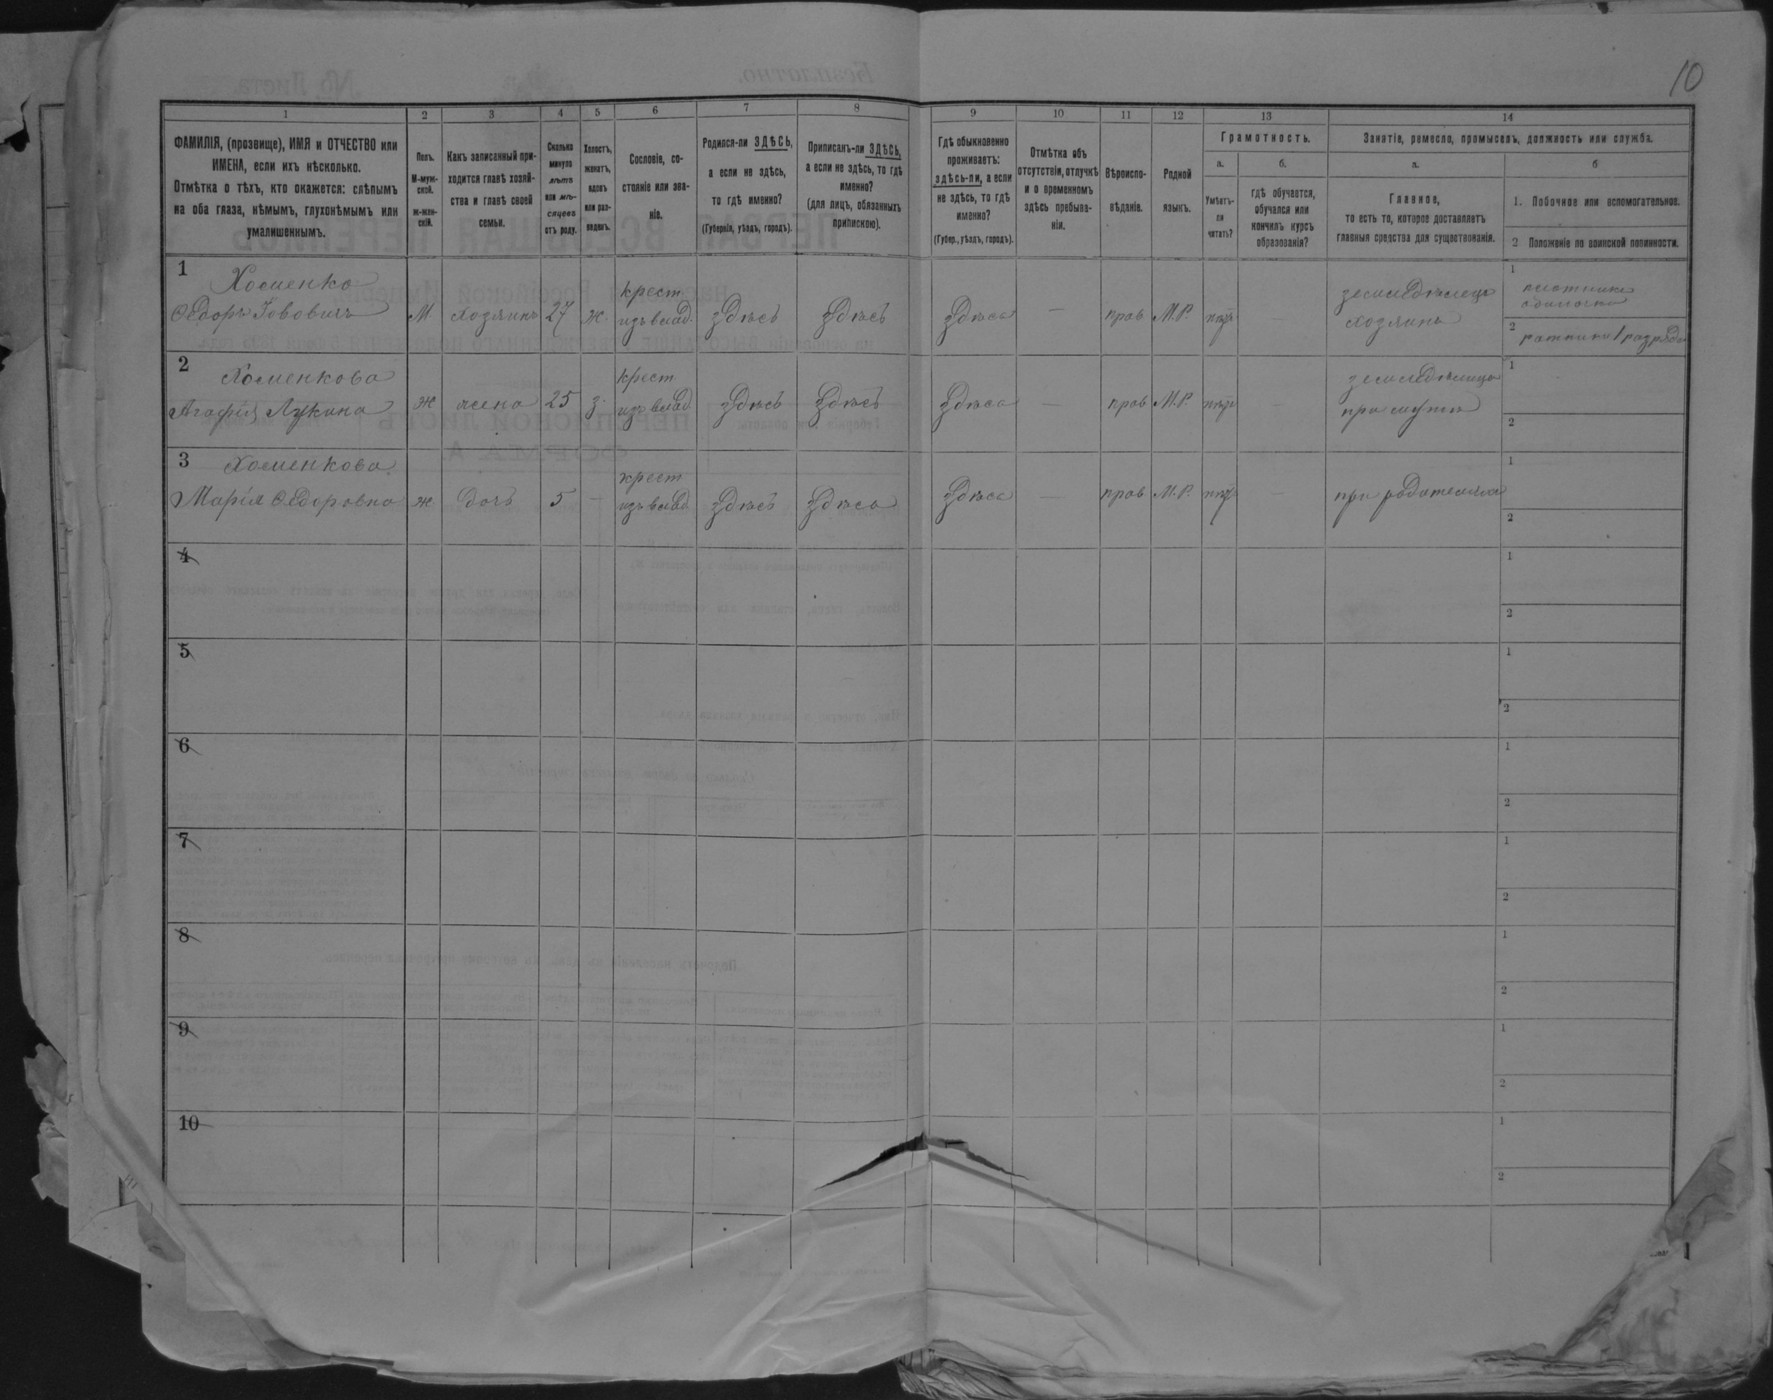 10
1 2 3 4 5 6 7 8 9 10 11 12 13 14
ФАМИЛІЯ, (прозвище), ИМЯ и ОТЧЕСТВО или
ИМЕНА, если ихъ нѣсколько.
Отмѣтка о тѣхъ, кто окажется: слѣпымъ
на оба глаза, нѣмымъ, глухонѣмымъ или
умалишеннымъ.
Полъ.
М-муж-
ской.
ж-жен-
скій.
Какъ записанный при-
ходится главѣ хозяй-
ства и главѣ своей
семьи.
Сколько
минуло
лѣтъ
или мѣ-
сяцевъ
отъ роду.
Холостъ,
женатъ,
вдовъ
или раз-
веденъ.
Сословіе, со-
стояніе или зва-
ніе.
Родился-ли ЗДѢСЬ,
а если не здѣсь,
то гдѣ именно?
(Губернія, уѣздъ, городъ).
Приписанъ-ли ЗДѢСЬ,
а если не здѣсь, то гдѣ
именно?
(для лицъ, обязанныхъ
припискою).
Гдѣ обыкновенно
проживаетъ:
здѣсь-ли, а если
не здѣсь, то гдѣ
именно?
(Губер., уѣздъ, городъ).
Отмѣтка объ
отсутствіи, отлучкѣ
и о временномъ
здѣсь пребыва-
ніи.
Вѣроиспо-
вѣданіе.
Родной
языкъ.
Грамотность.
а.
Умѣетъ-
ли
читать?
б.
гдѣ обучается,
обучался или
кончилъ курсъ
образованія?
Занятіе, ремесло, промыселъ, должность или служба.
а.
Главное,
то есть то, которое доставляетъ
главныя средства для существованія.
б
1. Побочное или вспомогательное.
2 Положеніе по воинской повинности.
1
Хоменко
Ѳедоръ Іововичъ М хозяинъ 27 ж. крест. изъ влад. здѣсь здѣсь здѣсь — прав М.Р. нѣтъ — земледѣлецъ хозяинъ
1 плотникъ одиночка
2 ратникъ 1 разряда
2
Хоменкова
Агафія Лукина ж жена 25 з. крест изъ влад здѣсь здѣсь здѣсь — прав М.Р. нѣтъ — земледѣлица при мужѣ
1
2
3
Хоменкова
Марія Ѳедоровна ж дочь 5 — крест изъ влад здѣсь здѣсь здѣсь — прав М.Р. нѣтъ — при родителяхъ
1
2
4
1
2
5
1
2
6
1
2
7
1
2
8
1
2
9
1
2
10
1
2